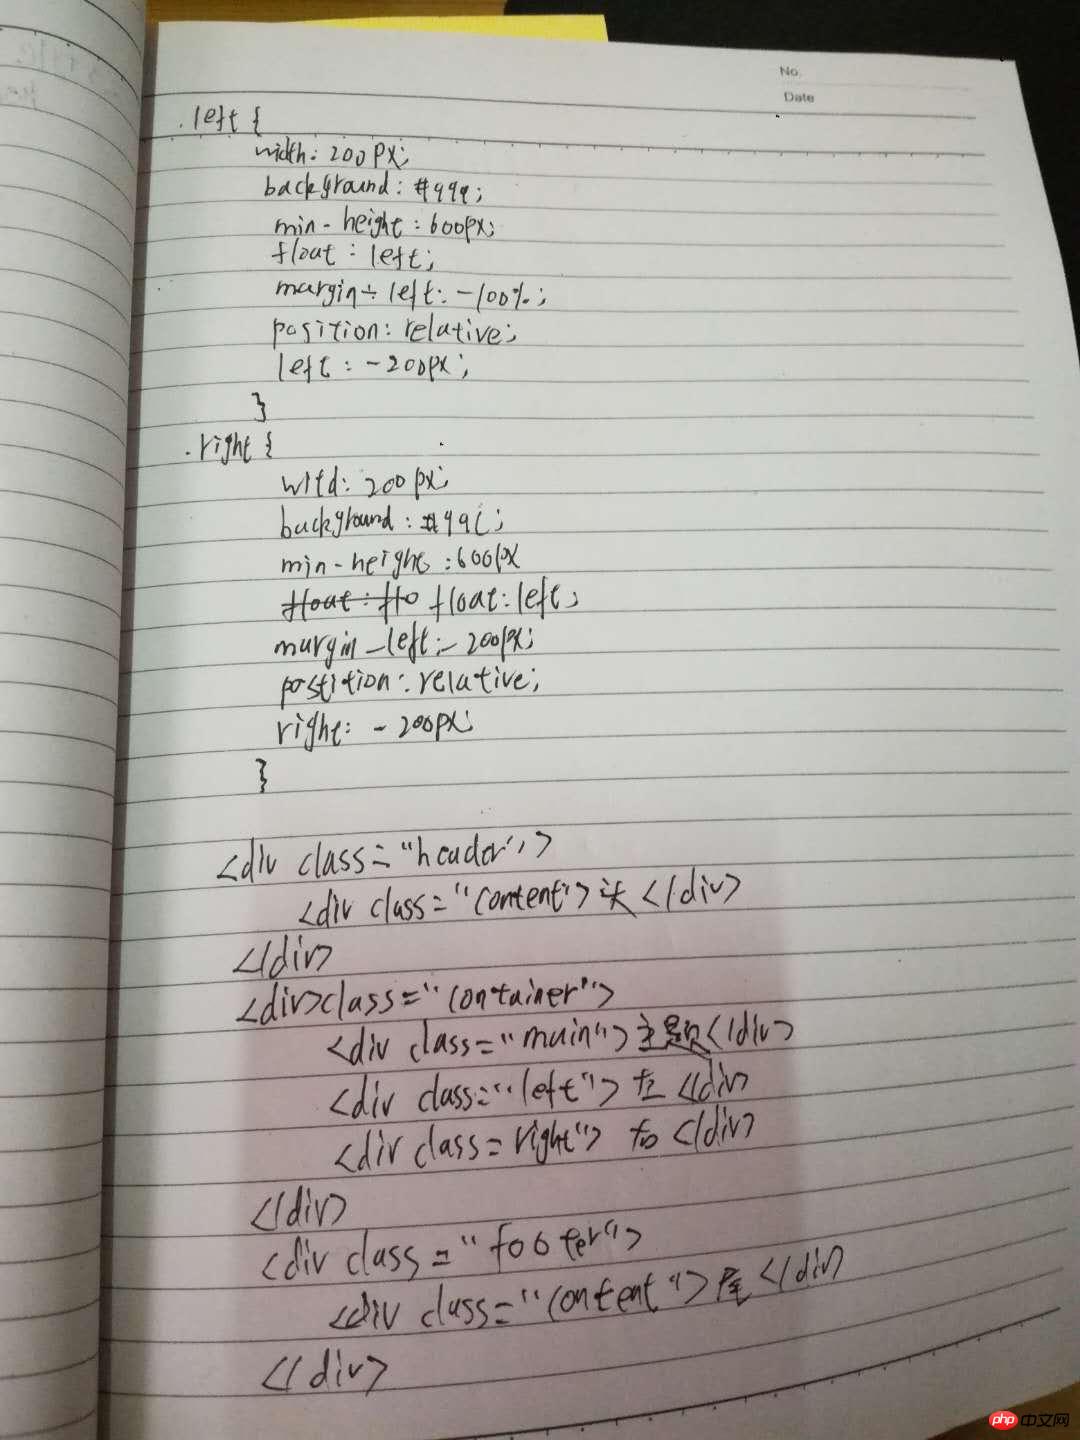 No.
Date
.left {
width: 200px;
background: #999;
min-height: 600px;
float: left;
margin-left: -100%;
position: relative;
left: -200px;
}
.right {
witd: 200px;
background: #99c;
min-height: 600px
float: flo float: left;
margin-left: -200px;
postition: relative;
right: -200px;
}
<div class="header">
<div class="content">头</div>
</div>
<div>class="container">
<div class="main">主题</div>
<div class="left">左</div>
<div class=right">右</div>
</div>
<div class="footer">
<div class="content">尾</div>
</div>
php中文网